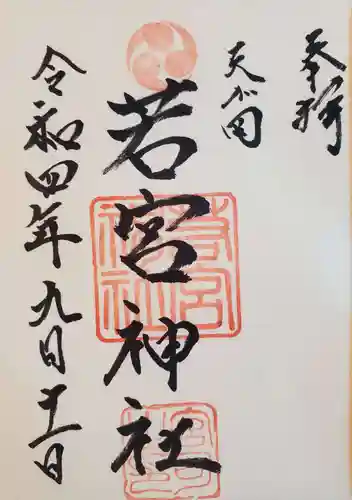 奉拝
天が田
若宮神社
令和四年九月十一日
若宮神社